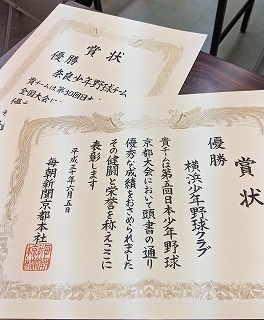 賞状
優勝
奈良少年野球チーム
貴チームは第30回日
全国大会に
賞状
優勝
横浜少年野球クラブ
貴チームは第五回日本少年野球
京都大会において頭書の通り
優秀な成績をおさめられました
その健闘と栄誉を称えここに
表彰します
平成三十年六月五日
毎朝新聞京都本社